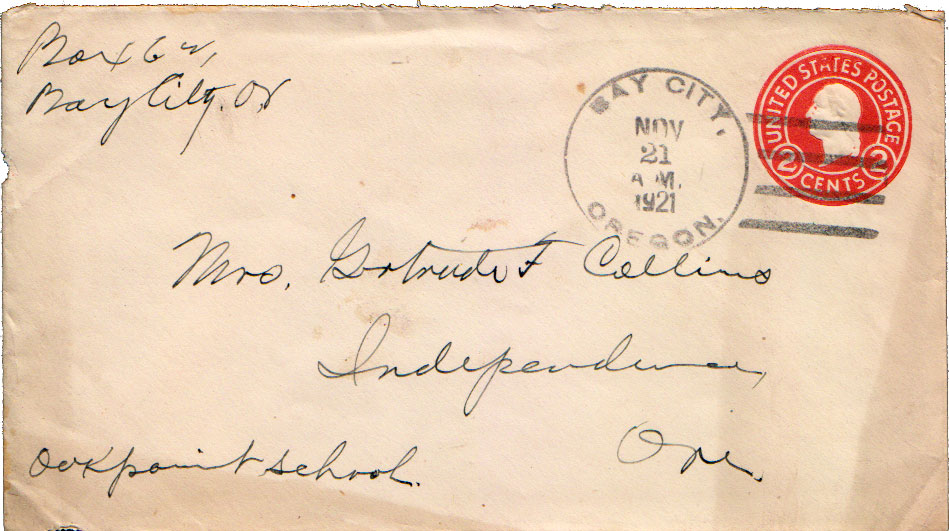 Box 62,
Bay City. Or
BAY CITY,
NOV
21
A.M.
1921
OREGON.
UNITED STATES POSTAGE
2 CENTS 2
Mrs. Gertrude F Collins
Independence,
Ore.
Oakpoint school.